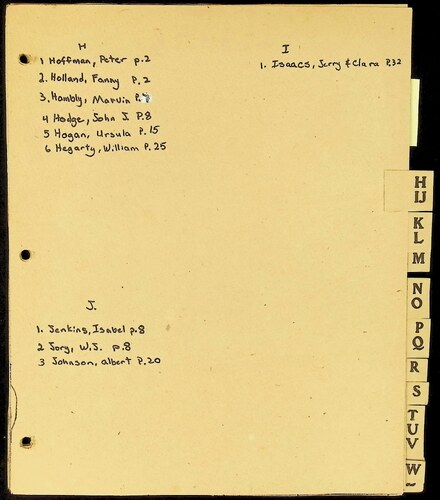 H
1 Hoffman, Peter p.2
2. Holland, Fanny P. 2
3. Hambly, Marvin P.
4 Hodge, John J. P.8
5 Hogan, Ursula P. 15
6 Hegarty, William P. 25
I
1. Isaacs, Jerry & Clara P.32
J.
1. Jenkins, Isabel p.8
2 Jory, W.J. p.8
3 Johnson, albert P.20
H
IJ
K
L
M
N
O
P
Q
R
S
T
U
V
W